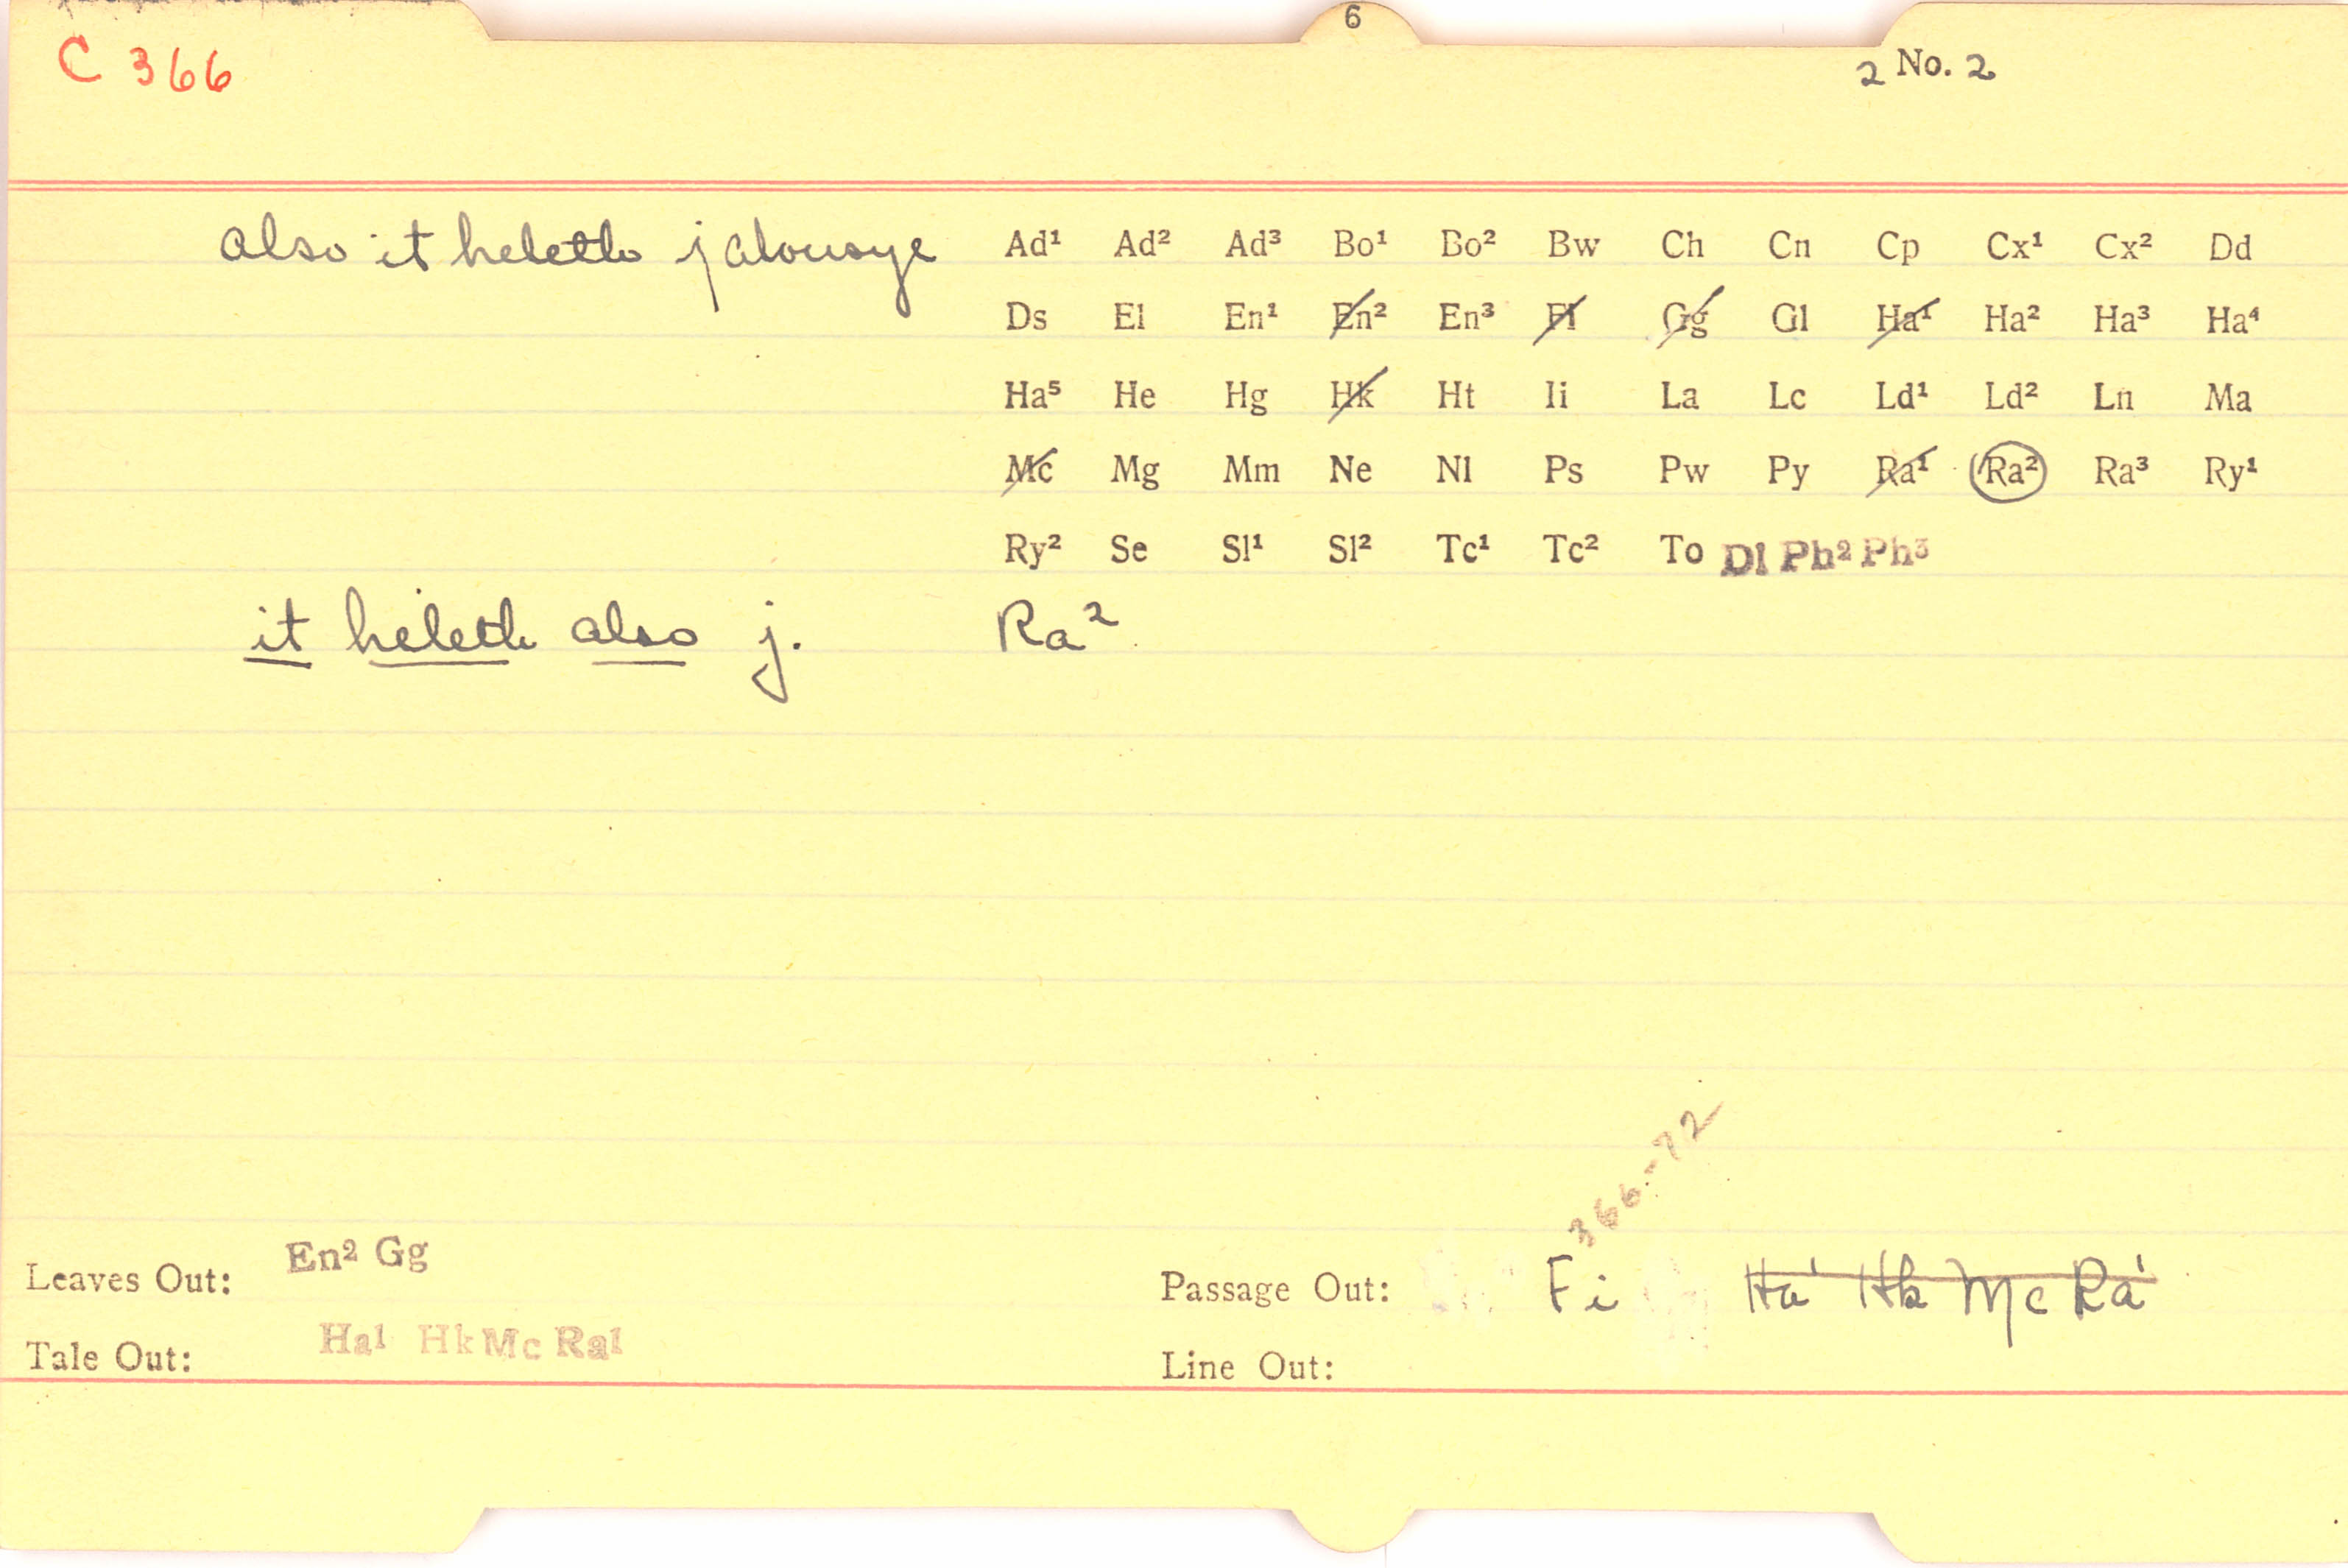 6
C 366
2 No. 2
also it heleth jalousye
Ad¹ Ad² Ad³ Bo¹ Bo² Bw Ch Cn Cp Cx¹ Cx² Dd
Ds El En¹ En² En³ Fi Gg Gl Ha¹ Ha² Ha³ Ha⁴
Ha⁵ He Hg Hk Ht Ii La Lc Ld¹ Ld² Ln Ma
Mc Mg Mm Ne Nl Ps Pw Py Ra¹ Ra² Ra³ Ry¹
Ry² Se Sl¹ Sl² Tc¹ Tc² To Dl Ph² Ph³
it heleth also j. Ra²
366-72
Leaves Out: En² Gg
Passage Out: Fi Ha¹ Hk Mc Ra¹
Tale Out: Ha¹ Hk Mc Ra¹
Line Out: